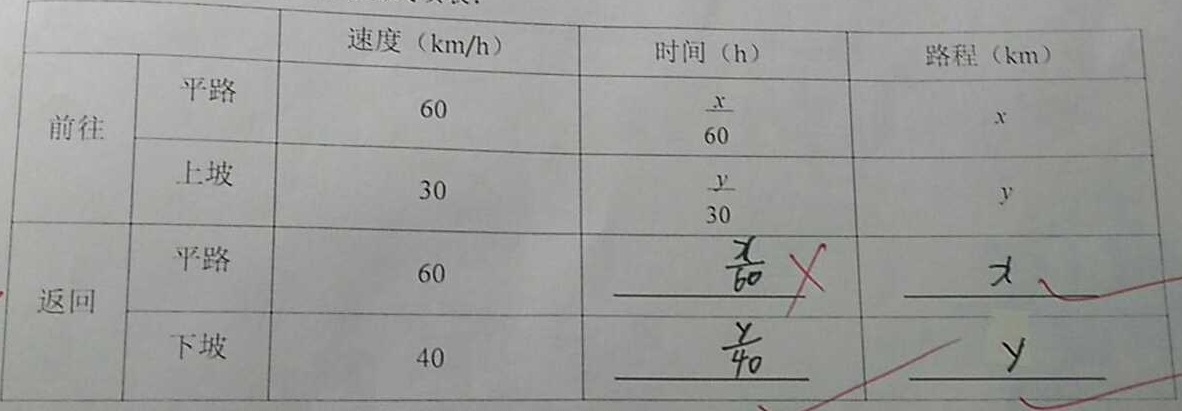 速度（km/h） 时间（h） 路程（km）
前往 平路 60 x/60 x
上坡 30 y/30 y
返回 平路 60 x/60 x
下坡 40 y/40 y